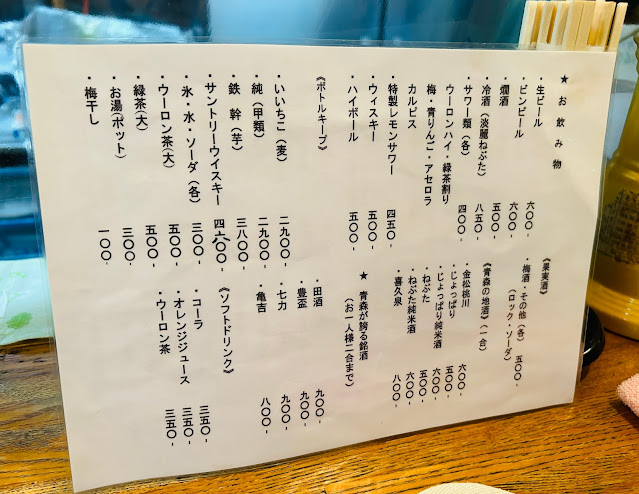 ★ お飲み物
・生ビール 六〇〇-
・ビンビール 六〇〇-
・燗酒 五〇〇-
・冷酒(淡麗ねぶた) 八五〇-
・サワー類(各) 四〇〇-
ウーロンハイ・緑茶割り
梅・青りんご・アセロラ
カルピス
・特製レモンサワー 四五〇-
・ウィスキー 五〇〇-
・ハイボール 五〇〇-
《ボトルキープ》
・いいちこ(麦) 二九〇〇-
・純(甲類) 二九〇〇-
・鉄幹(芋) 三八〇〇-
・サントリーウイスキー 四六〇〇-
・氷・水・ソーダ(各) 三〇〇-
・ウーロン茶(大) 五〇〇-
・緑茶(大) 五〇〇-
・お湯(ポット) 三〇〇-
・梅干し 一〇〇-
《果実酒》
・梅酒・その他(各) 五〇〇-
(ロック・ソーダ)
《青森の地酒》(一合)
・金松桃川 六〇〇-
・じょっぱり 五〇〇-
・じょっぱり純米酒 六〇〇-
・ねぶた 五〇〇-
・ねぶた純米酒 六〇〇-
・喜久泉 八〇〇-
★ 青森が誇る銘酒
(お一人様二合まで)
・田酒 九〇〇-
・豊盃 九〇〇-
・七力 九〇〇-
・亀吉 八〇〇-
《ソフトドリンク》
・コーラ 三五〇-
・オレンジジュース 三五〇-
・ウーロン茶 三五〇-